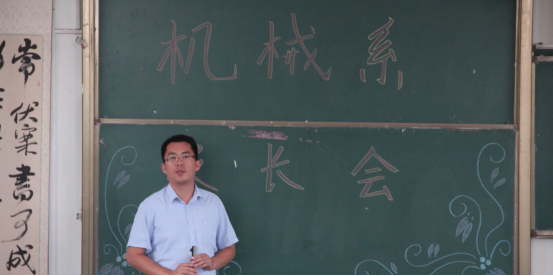 机械系
长会
常伏案書可成